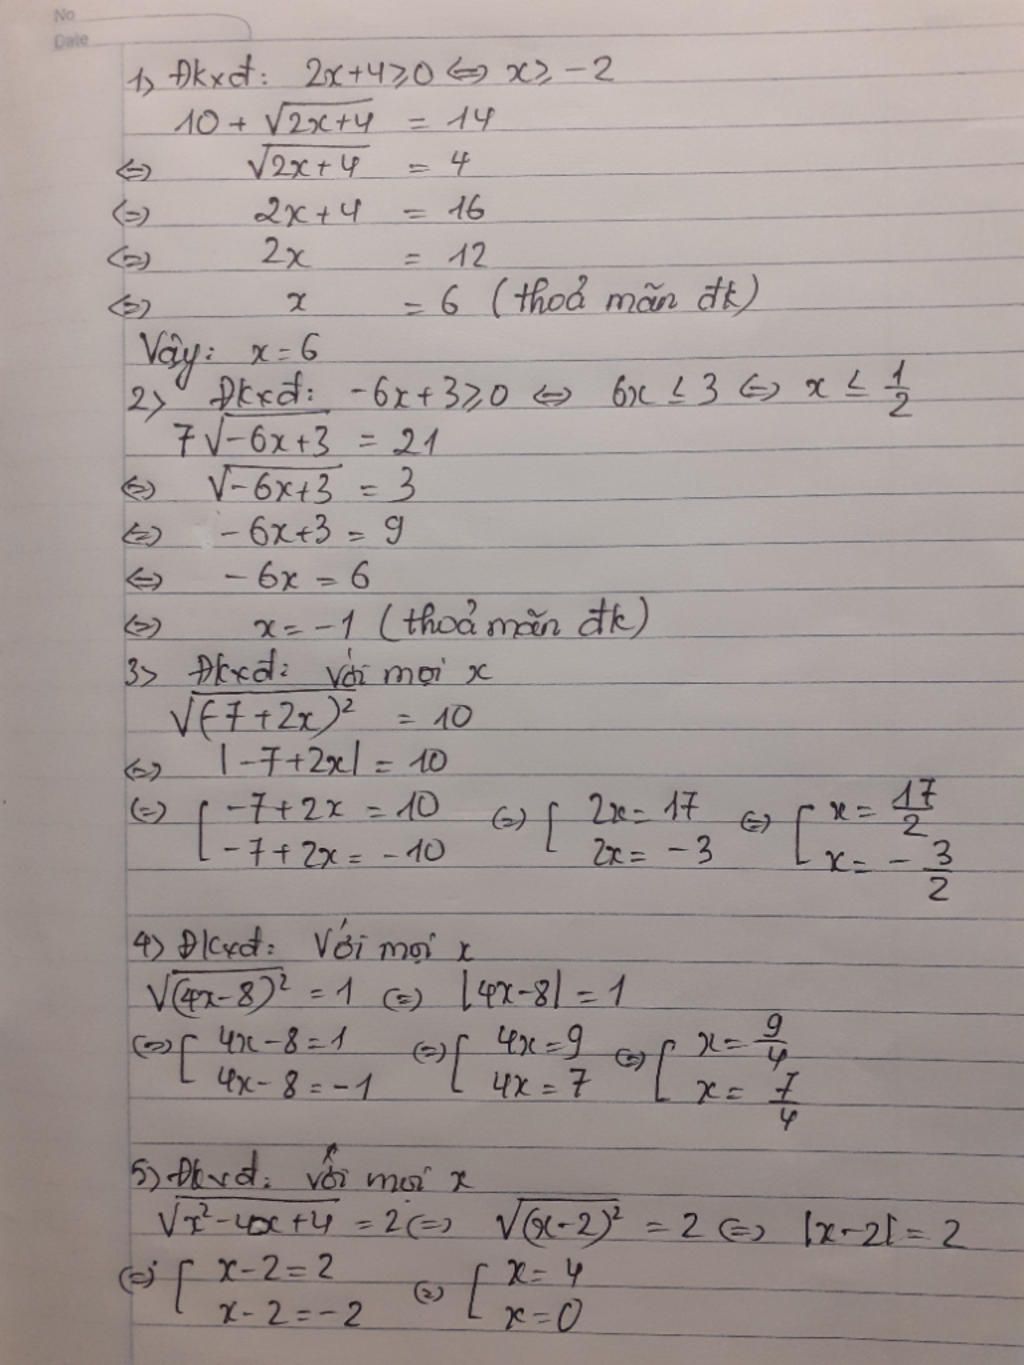 No
Date
1) Đkxđ: 2x+4≥0 ⇔ x≥-2
10 + √(2x+4) = 14
⇔ √(2x+4) = 4
⇔ 2x+4 = 16
⇔ 2x = 12
⇔ x = 6 (thoả mãn đk)
Vậy: x=6
2) Đkxđ: -6x+3≥0 ⇔ 6x ≤ 3 ⇔ x ≤ 1/2
7√(-6x+3) = 21
⇔ √(-6x+3) = 3
⇔ -6x+3 = 9
⇔ -6x = 6
⇔ x = -1 (thoả mãn đk)
3) Đkxđ: với mọi x
√(-7+2x)² = 10
⇔ |-7+2x| = 10
⇔ [ -7+2x = 10 ⇔ [ 2x = 17 ⇔ [ x = 17/2
-7+2x = -10 2x = -3 x = -3/2
4) Đkxđ: Với mọi x
√(4x-8)² = 1 ⇔ |4x-8| = 1
⇔ [ 4x-8=1 ⇔ [ 4x=9 ⇔ [ x = 9/4
4x-8=-1 4x=7 x = 7/4
5) Đkxđ: với mọi x
√(x²-4x+4) = 2 ⇔ √(x-2)² = 2 ⇔ |x-2| = 2
⇔ [ x-2=2 ⇔ [ x=4
x-2=-2 x=0